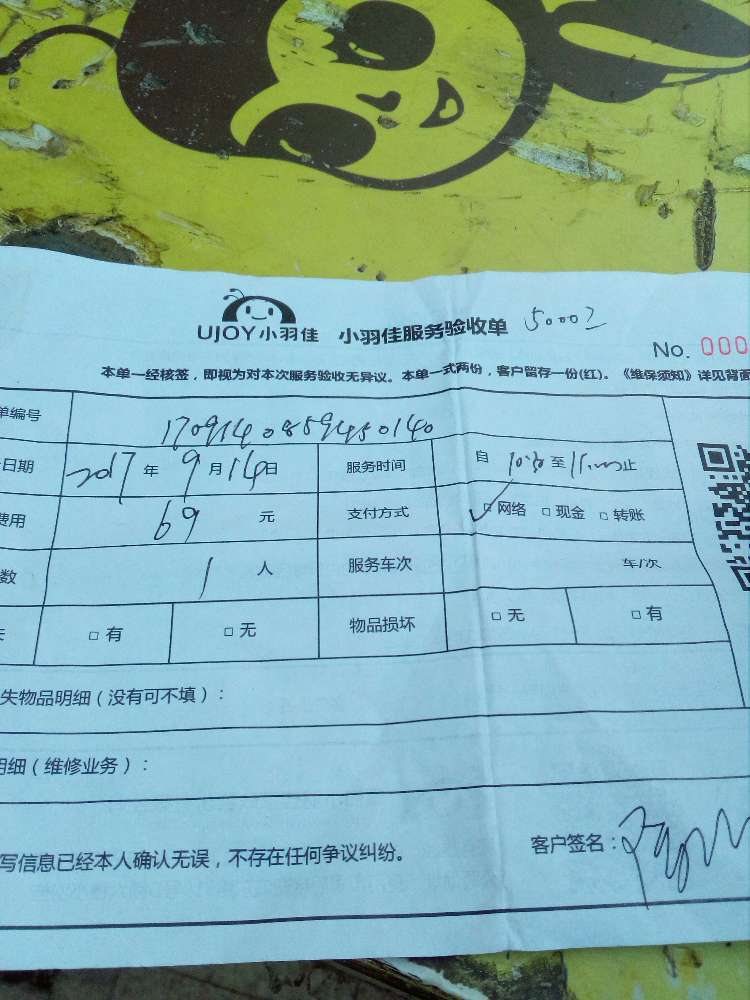 UJOY小羽佳 小羽佳服务验收单 50002
No. 000
本单一经核签，即视为对本次服务验收无异议。本单一式两份，客户留存一份(红)。《维保须知》详见背面
单编号 1709140859450140
日期 2017 年 9 月 14 日 服务时间 自 10:30 至 11:00 止
费用 69 元 支付方式 ✓□网络 □现金 □转账
数 1 人 服务车次 车/次
失 □有 □无 物品损坏 □无 □有
失物品明细（没有可不填）：
明细（维修业务）：
写信息已经本人确认无误，不存在任何争议纠纷。
客户签名：